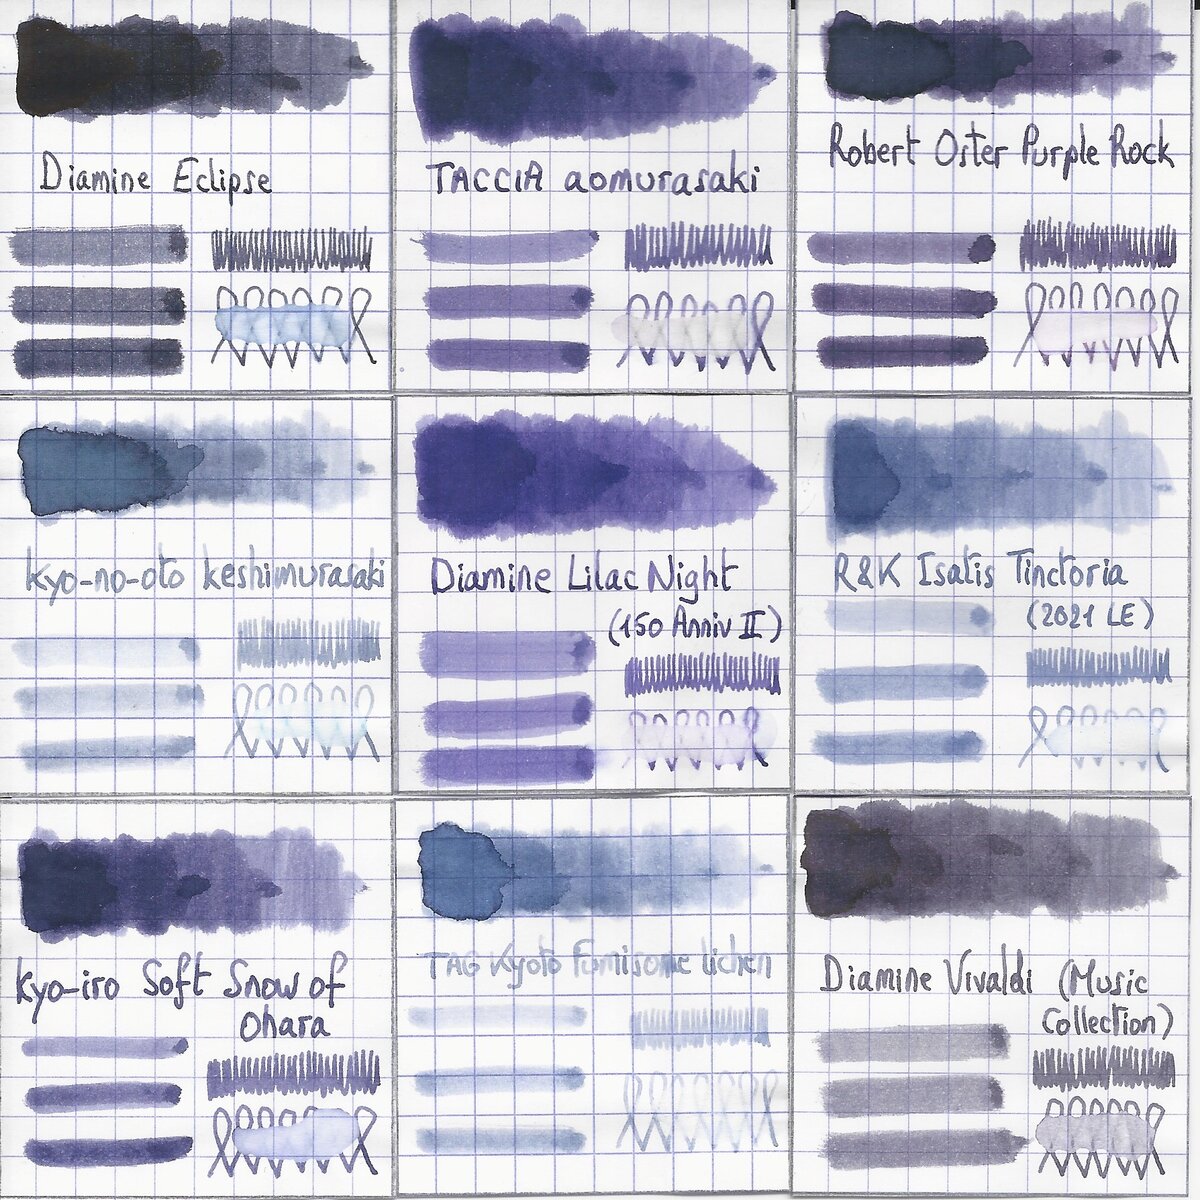 Diamine Eclipse
TACCIA aomurasaki
Robert Oster Purple Rock
kyo-no-oto keshimurasaki
Diamine Lilac Night
(150 Anniv II)
R&K Isatis Tinctoria
(2021 LE)
kyo-iro Soft Snow of
Ohara
TAG Kyoto Fumisome lichen
Diamine Vivaldi (Music
Collection)